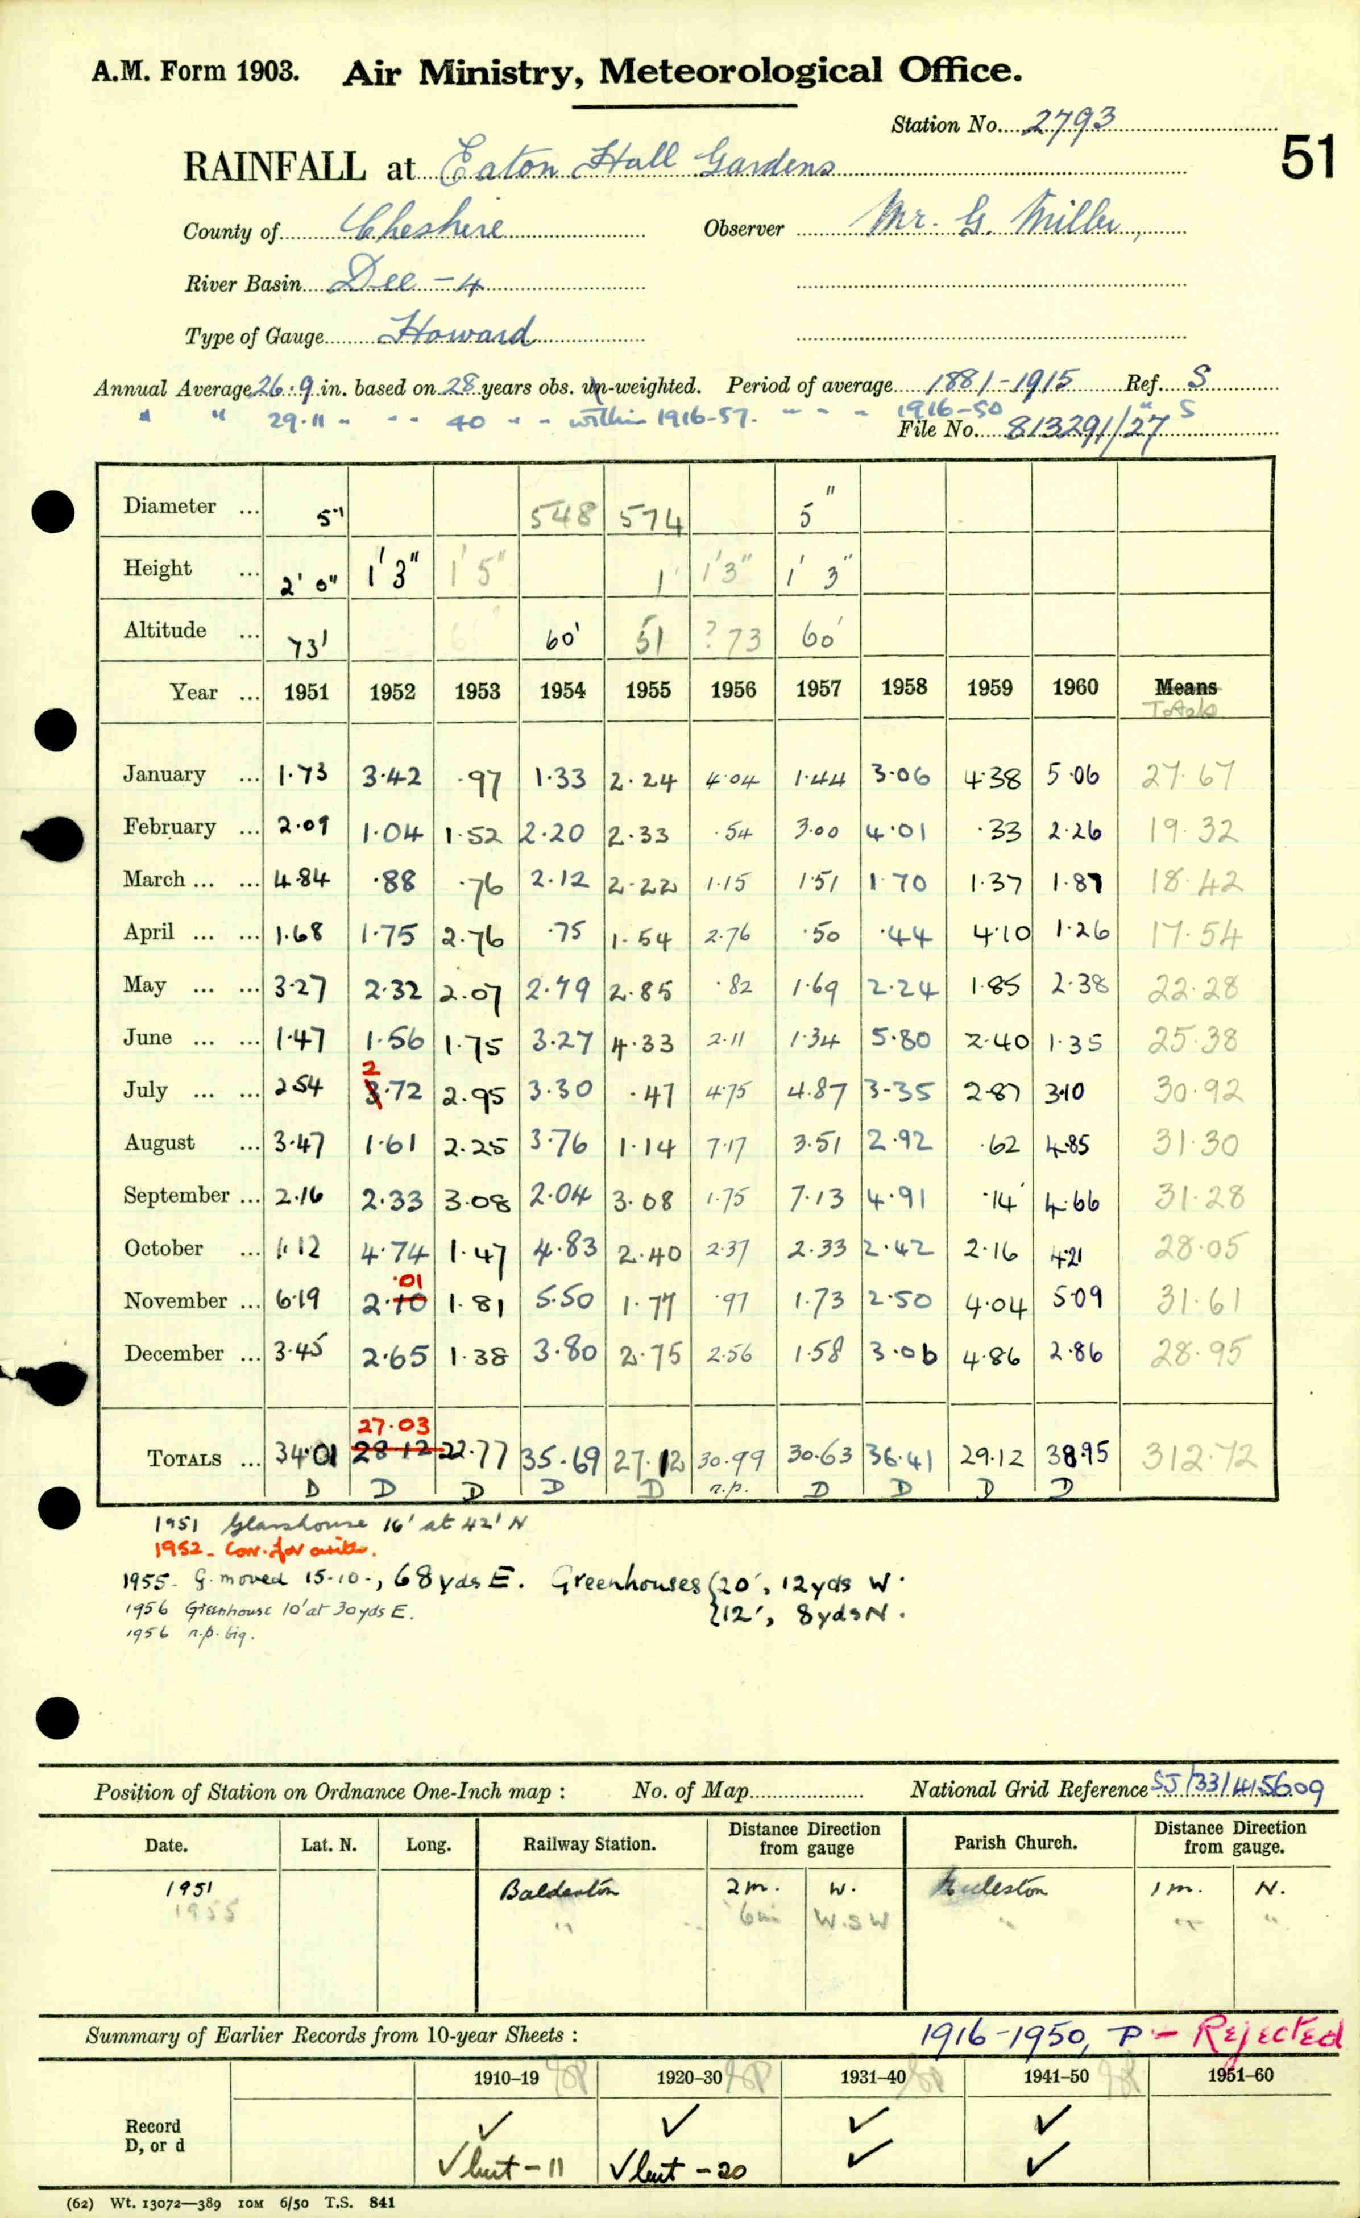 A.M. Form 1903. Air Ministry, Meteorological Office.
Station No. 2793
51
RAINFALL at Eaton Hall Gardens
County of Cheshire Observer Mr. G. Miller,
River Basin Dee - 4
Type of Gauge Howard
Annual Average 26.9 in. based on 28 years obs. un-weighted. Period of average 1881-1915 Ref. S
" " 29.11 " " " 40 " " within 1916-57. " " " 1916-50 " S
File No. 813291/27
Diameter ... 5" 548 574 5"
Height ... 2' 0" 1' 3" 1' 5" 1' 1'3" 1' 3"
Altitude ... 73' 60' 51 ?73 60'
Year ... 1951 1952 1953 1954 1955 1956 1957 1958 1959 1960 Means
Totals
January ... 1.73 3.42 .97 1.33 2.24 4.04 1.44 3.06 4.38 5.06 27.67
February ... 2.09 1.04 1.52 2.20 2.33 .54 3.00 4.01 .33 2.26 19.32
March ... ... 4.84 .88 .76 2.12 2.22 1.15 1.51 1.70 1.37 1.87 18.42
April ... ... 1.68 1.75 2.76 .75 1.54 2.76 .50 .44 4.10 1.26 17.54
May ... ... 3.27 2.32 2.07 2.79 2.85 .82 1.69 2.24 1.85 2.38 22.28
June ... ... 1.47 1.56 1.75 3.27 4.33 2.11 1.34 5.80 2.40 1.35 25.38
2
July ... ... 2.54 3.72 2.95 3.30 .47 4.75 4.87 3.35 2.87 3.10 30.92
August ... 3.47 1.61 2.25 3.76 1.14 7.17 3.51 2.92 .62 4.85 31.30
September ... 2.16 2.33 3.08 2.04 3.08 1.75 7.13 4.91 .14 4.66 31.28
October ... 1.12 4.74 1.47 4.83 2.40 2.37 2.33 2.42 2.16 4.21 28.05
.01
November ... 6.19 2.10 1.81 5.50 1.77 .97 1.73 2.50 4.04 5.09 31.61
December ... 3.45 2.65 1.38 3.80 2.75 2.56 1.58 3.06 4.86 2.86 28.95
27.03
TOTALS ... 34.01 28.12 22.77 35.69 27.12 30.99 30.63 36.41 29.12 38.95 312.72
D D D D D n.p. D D D D
1951 Glasshouse 16' at 42' N
1952 - Corr. for arith.
1955 - G. moved 15-10-, 68yds E. Greenhouses {20', 12yds W.
1956 Greenhouse 10' at 30yds E. {12', 8yds N.
1956 n.p. big.
Position of Station on Ordnance One-Inch map : No. of Map National Grid Reference SJ/33/415609
Date. Lat. N. Long. Railway Station. Distance from Direction gauge Parish Church. Distance from Direction gauge.
1951 Balderton 2m. W. Eccleston 1m. N.
1955 " " W.S.W " " "
Summary of Earlier Records from 10-year Sheets : 1916-1950, P - Rejected
1910-19 1920-30 1931-40 1941-50 1951-60
Record ✓ ✓ ✓ ✓
D, or d ✓ but - 11 ✓ but - 20 ✓ ✓
(62) Wt. 13072—389 10M 6/50 T.S. 841